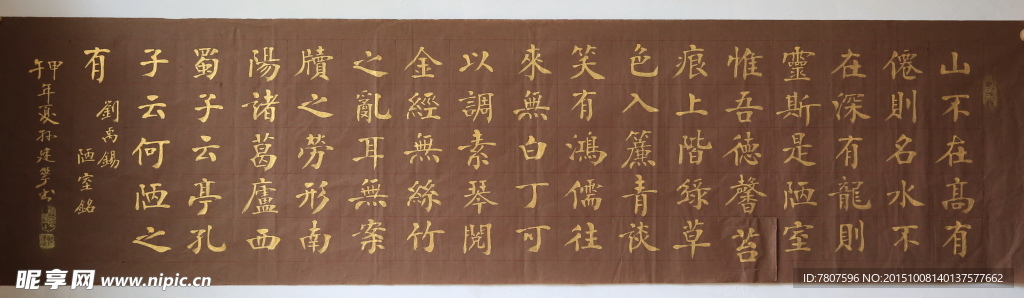 山不在高有
僊則名水不
在深有龍則
靈斯是陋室
惟吾德馨苔
痕上階綠草
色入簾青談
笑有鴻儒往
來無白丁可
以調素琴閱
金經無絲竹
之亂耳無案
牘之勞形南
陽諸葛廬西
蜀子云亭孔
子云何陋之
有
劉禹錫
陋室銘
甲午年夏孙建华书
昵享网 www.nipic.cn
ID:7807596 NO:20151008140137577662